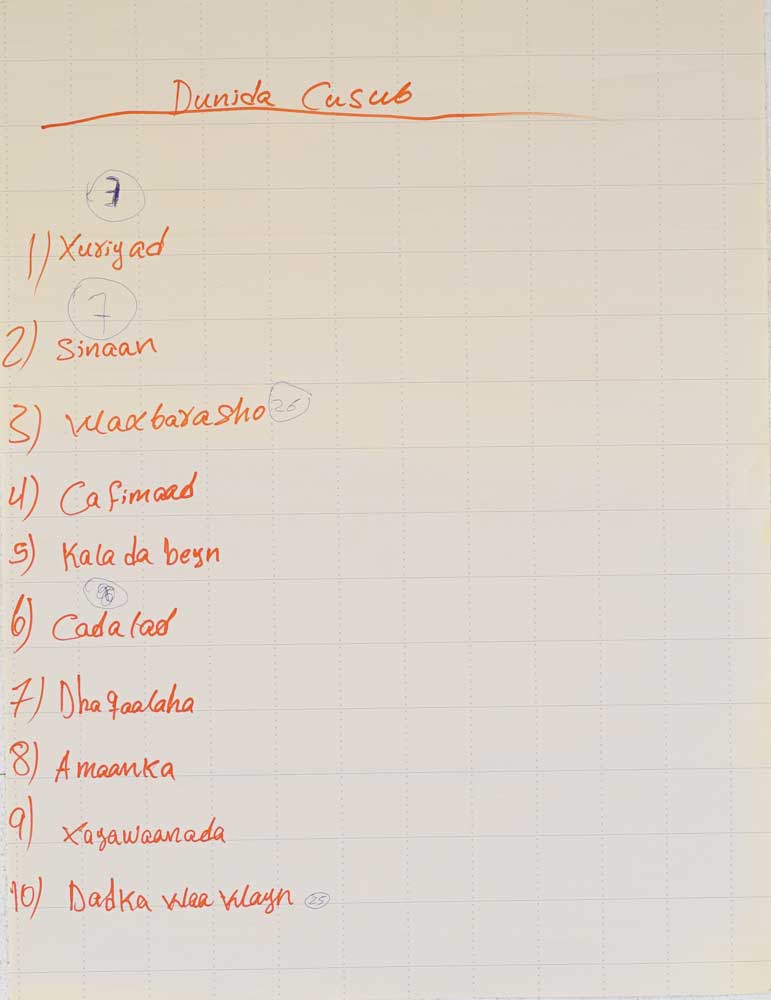 Dunida Cusub
7
1) Xuriyad
7
2) Sinaan
3) Waxbarasho 26
4) Cafimaad
5) Kala da beyn
6) Cadalad
7) Dhaqaalaha
8) Amaanka
9) Xayawaanada
10) Dadka waa wayn 25